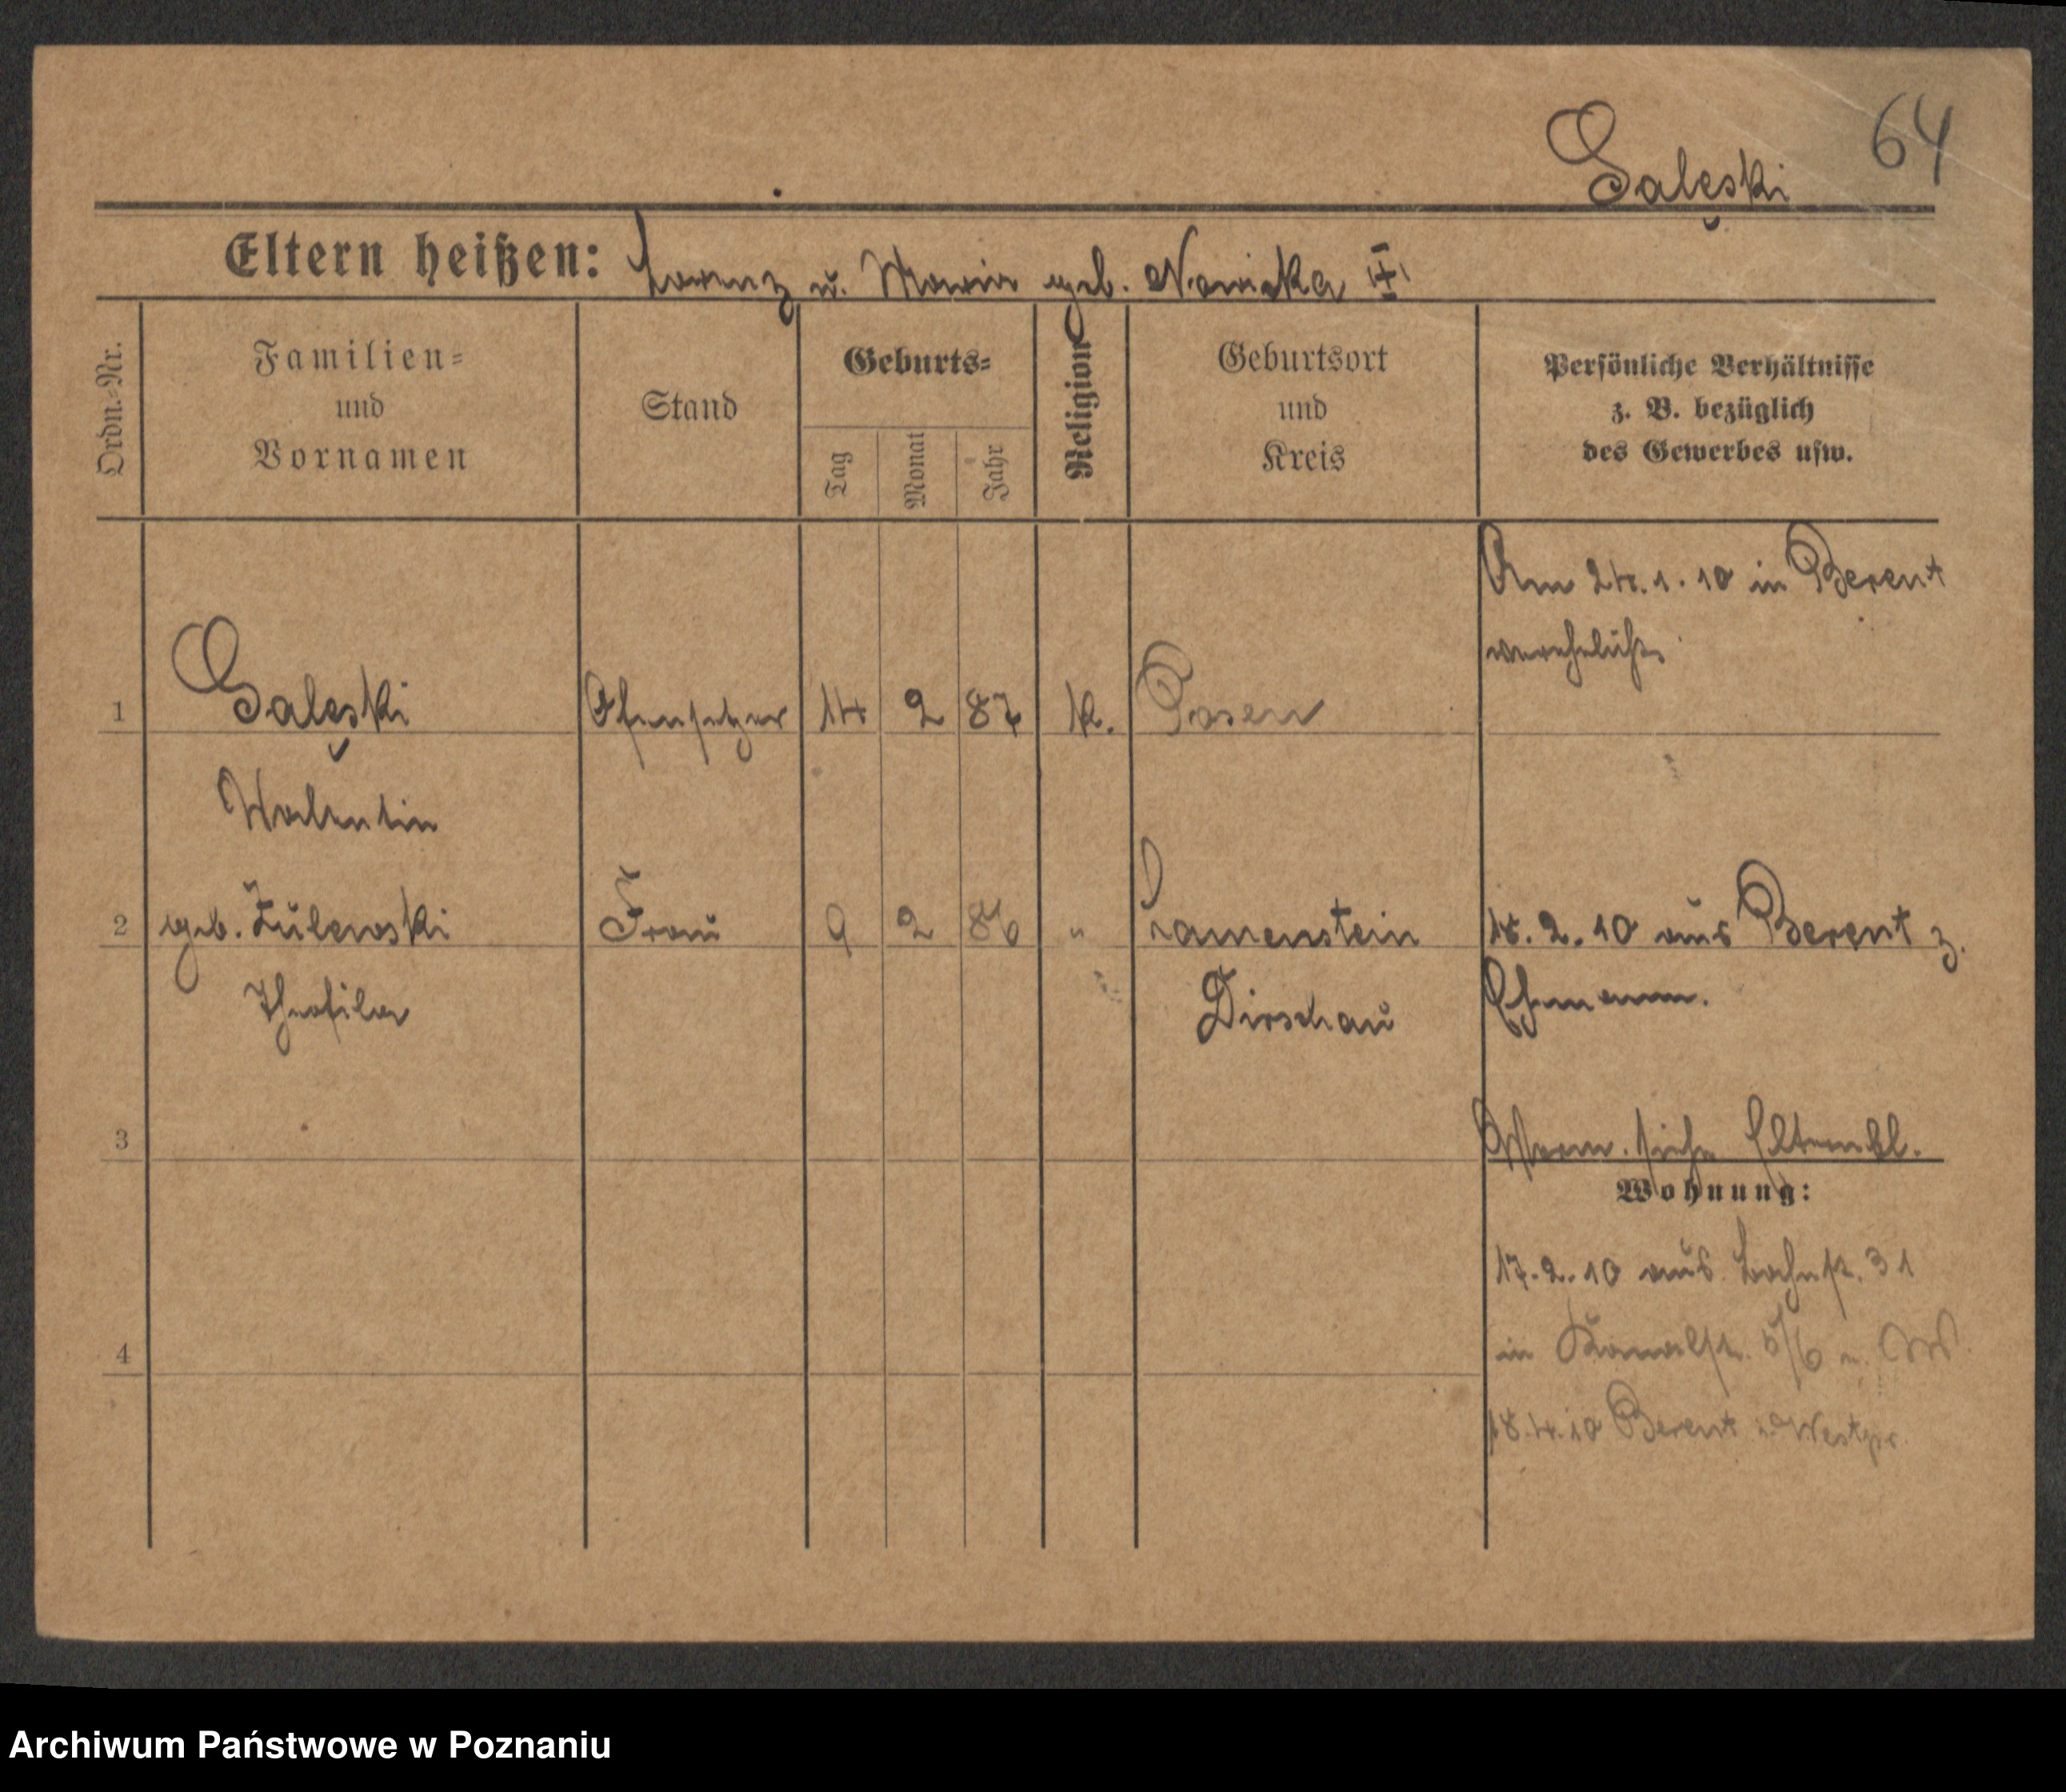 64
Galęski
Eltern heißen: Lorenz u. Maria geb. Nowicka
Ordn.-Nr.
Familien-
und
Vornamen
Stand
Geburts-
Tag
Monat
Jahr
Religion
Geburtsort
und
Kreis
Persönliche Verhältnisse
z. B. bezüglich
des Gewerbes usw.
Am 24.1.10 in Berent
verehelicht.
1 Galęski Ofensetzer 14 2 87 k. Posen
Valentin
2 geb. Żulewski Frau 9 2 86 " Lamenstein 14.2.10 aus Berent z.
Theofila Dirschau Ehemann.
3 siehe Elternbl.
Wohnung:
17.2.10 aus 31
4 in Kanalstr. 5/6
18.4.10 Berent i. Westpr.
Archiwum Państwowe w Poznaniu